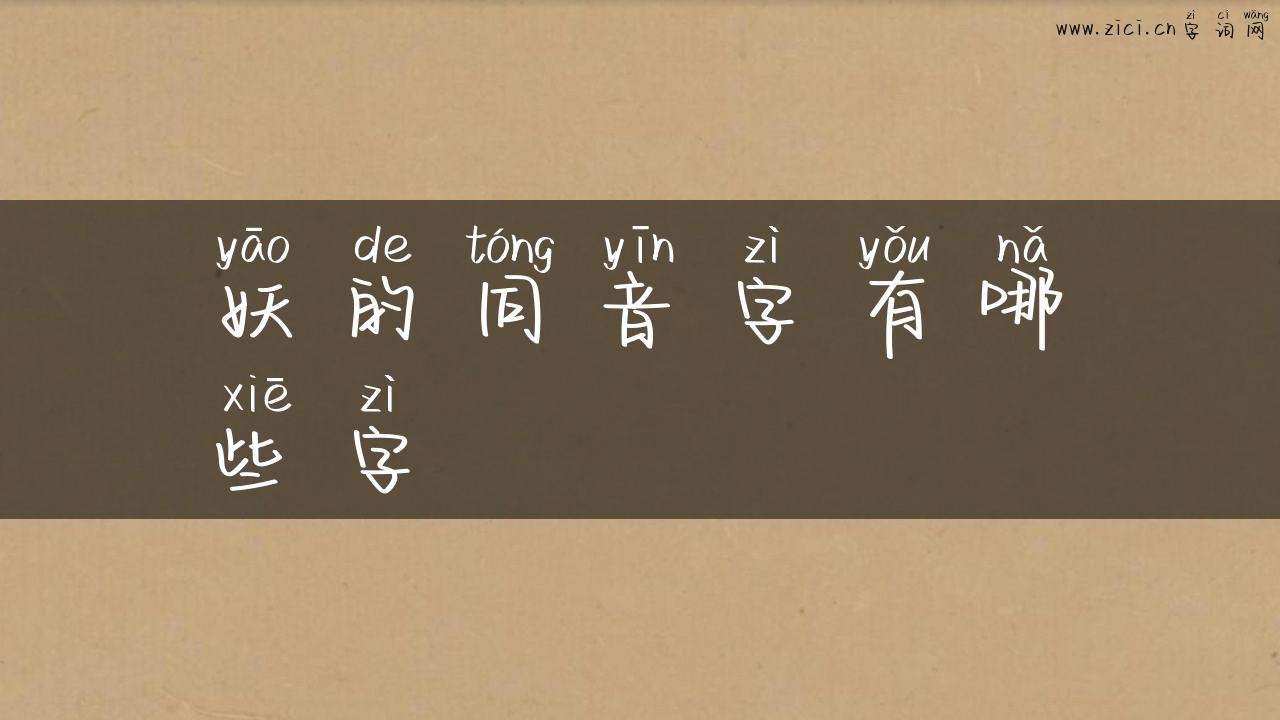 zì cí wǎng
www.zici.cn 字词网
yāo de tóng yīn zì yǒu nǎ
妖的同音字有哪
xiē zì
些字